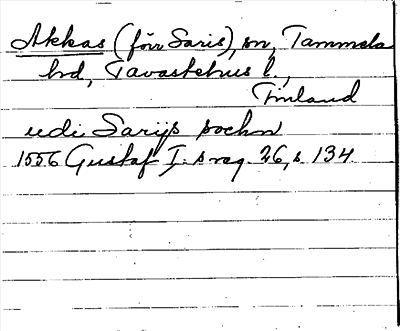 Akkas (förr Saris), sn, Tammela
hd, Tavastehus l.,
Finland
udi Sarijs sochn
1556 Gustaf I:s reg. 26, s. 134